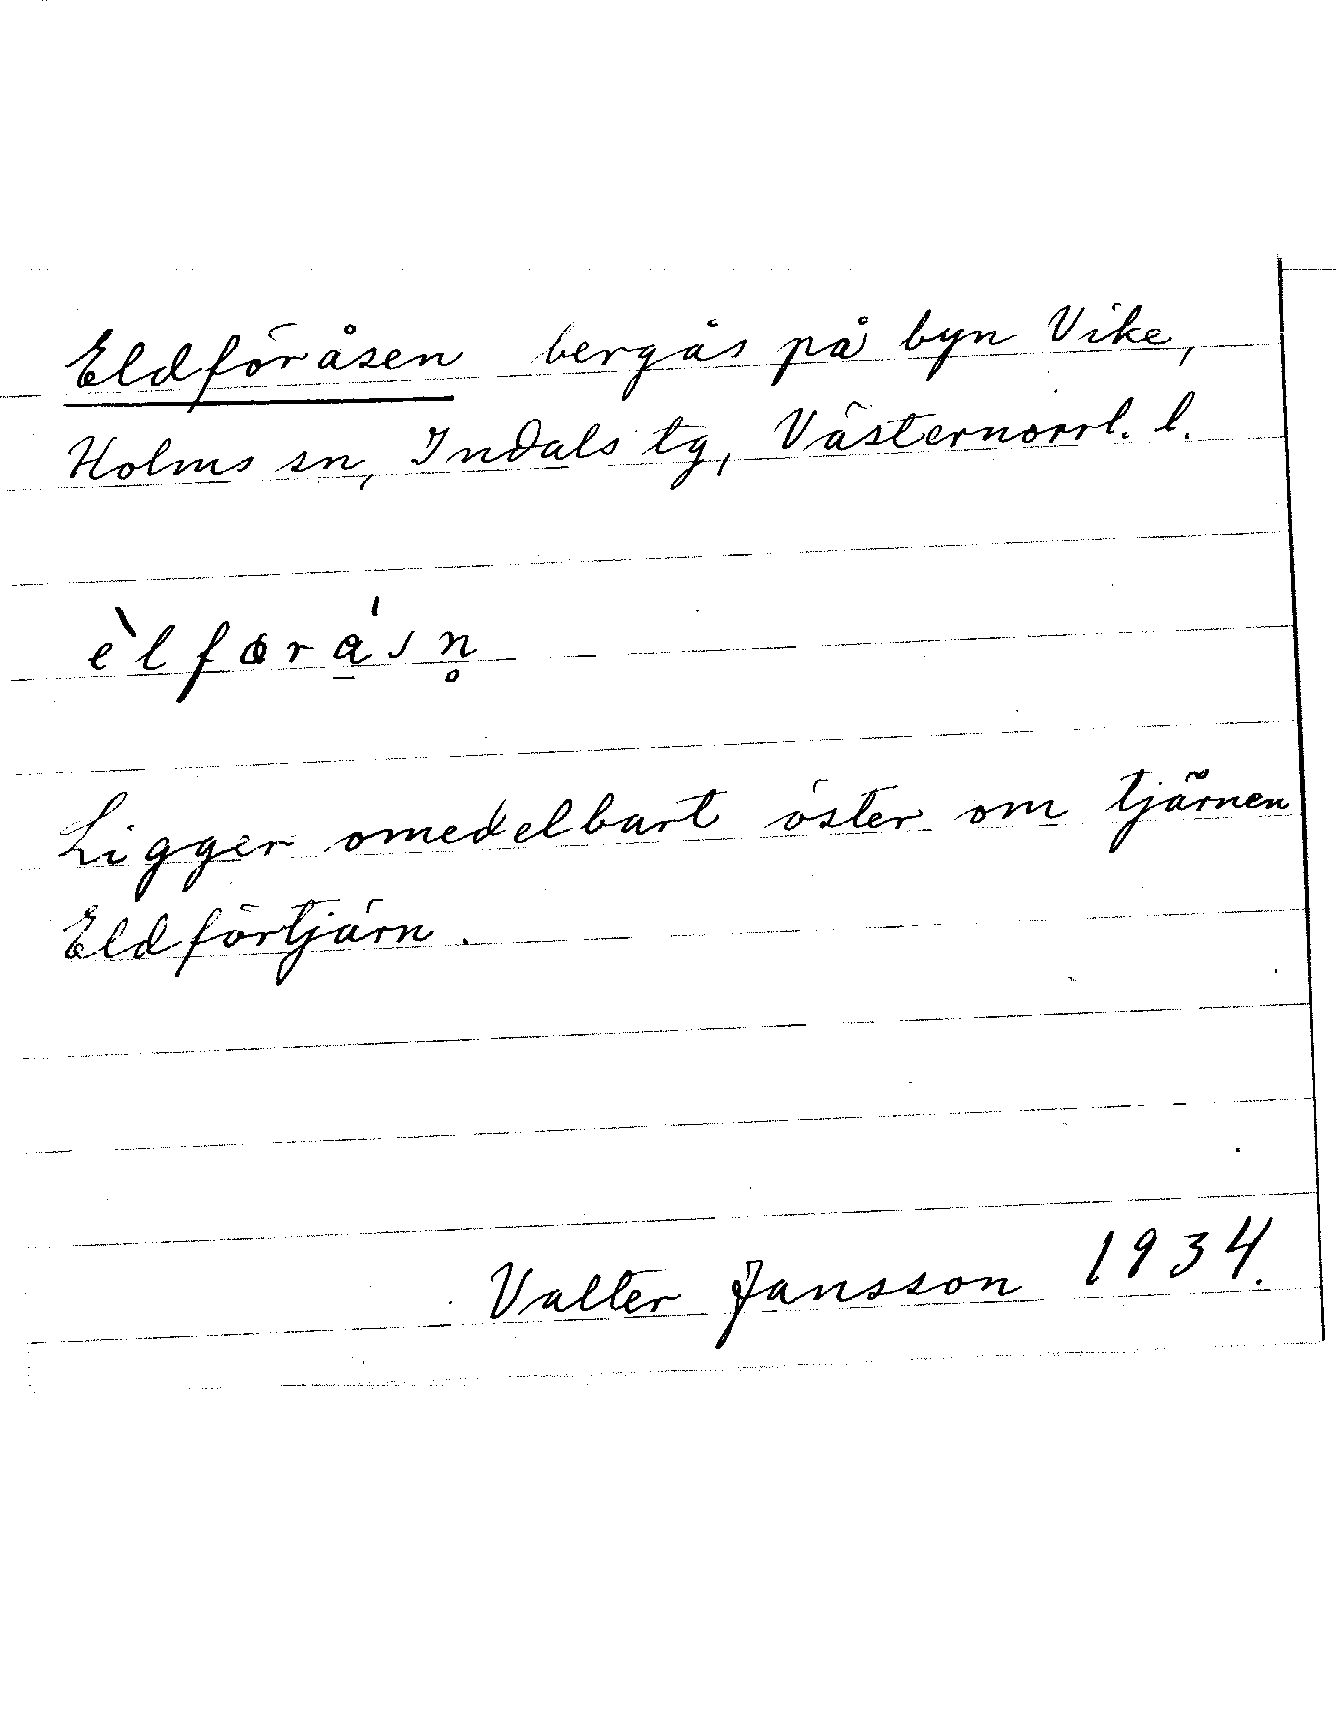 Eldföråsen bergås på byn Vike,
Holms sn, Indals tg, Västernorrl. l.
è̀lfɵrá̱sn̥
Ligger omedelbart öster om tjärnen
Eldförtjärn.
Valter Jansson 1934.